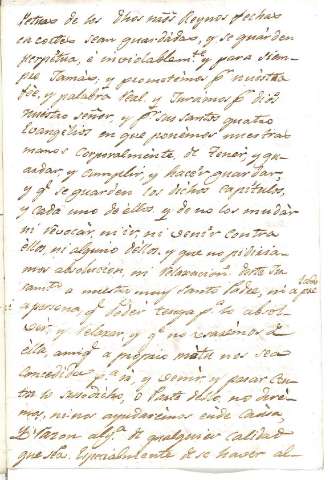 letras de los dhos nros Reynos fechas
en cortes sean guardidas, y se guarden
perpetua, e inviolablam.te y para siem-
pre Jamas, y prometemos p.r nuestra
fée, y palabra Real y Juramos p.r diós
nuestro señor, y p.r sus santos quatro
Evangelios en que ponemos nuestras
manos corporalmente, de tener, y gu-
ardar, y cumplir, y hacér guardar,
y q.e se guarden los dichos capitulos,
y cada uno de ellos, y de no los mudár
ni revocár, ni ir, ni venir contra
ellos, ni alguno dellos, y que no pidiria-
mos absolucion, ni relaxacion deste Ju
ramto a nuestro muy santo Padre, ni a
apersona, q.e poder tenga p.a lo absol-
vér, y relaxar, y q.e no usaremos de
ella, aunq.e a propio motu nos sea
concedida p.a ir, y venir, y pasar con-
tra lo susodicho, o parte dello, no daré-
mos, ni nos ayudaremos ende causa,
o razon alg.a de qualquier calidad
que sea. Especialmente de se haver al-